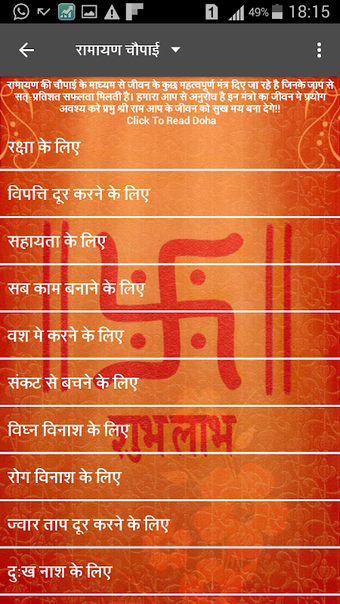 1 49% 18:15
रामायण चौपाई
रामायण की चौपाई के माध्यम से जीवन के कुछ महत्वपूर्ण मंत्र दिए जा रहे है जिनके जाप से
सत्-प्रतिशत सफलता मिलती है। हमारा आप से अनुरोध है इन मंत्रो का जीवन मे प्रयोग
अवश्य करे प्रभु श्री राम आप के जीवन को सुख मय बना देगे!!
Click To Read Doha
रक्षा के लिए
विपत्ति दूर करने के लिए
सहायता के लिए
सब काम बनाने के लिए
वश मे करने के लिए
संकट से बचने के लिए
विघ्न विनाश के लिए
शुभ लाभ
रोग विनाश के लिए
ज्वार ताप दूर करने के लिए
दुःख नाश के लिए